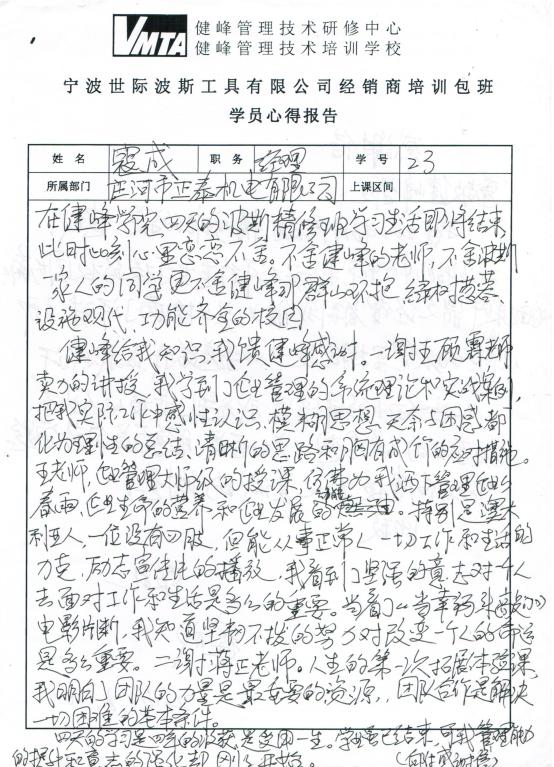 VMTA
健峰管理技术研修中心
健峰管理技术培训学校
宁波世际波斯工具有限公司经销商培训包班
学员心得报告
姓名 霞成 职务 经理 学号 23
所属部门 庄河市正泰机电有限公司 上课区间
在健峰学院四天的波斯精修班学习生活即将结束
此时此刻心里恋恋不舍。不舍健峰的老师,不舍波斯
家人的同学更不舍健峰那群山环抱、绿树葱茏、
设施现代、功能齐全的校园
健峰给我知识,我馈健峰感谢。一谢王硕霖老师
卖力的讲授,我学到了企业管理的系统理论和实战案例,
把我实际工作中感性认识、模糊思想、无奈与困惑都
化为理性的总结、清晰的思路和胸有成竹的应对措施。
王老师,企业管理大师级的授课,您带为我洒下管理企业的
春雨,企业生命的营养和企业发展的。特别是澳大
利亚人,一位没有四肢,但能从事正常人一切工作和生活的
力克,励志宣传片的播放,我看到了坚强的意志对一个人
去面对工作和生活是多么的重要。当看了《当幸福来敲门》
电影片断,我知道坚韧不拔的努力对改变一个人的命运
是多么重要。二谢蒋正老师。人生的第一次拓展体验课,
我明白了团队的力量是最重要的资源,团队合作是解决
一切困难的基本条件。
四天的学习是四年的收获是受用一生。学业虽已结束,可我管理能力
的提升和意志的强化却刚刚开始。